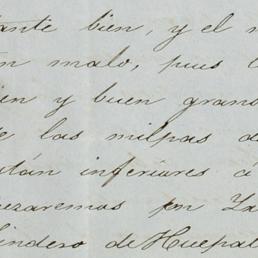 ante bien, y el
malo, pues
en y buen grano
las milpas d
tán inferiores á
ezaremos por
lindero de Huepal